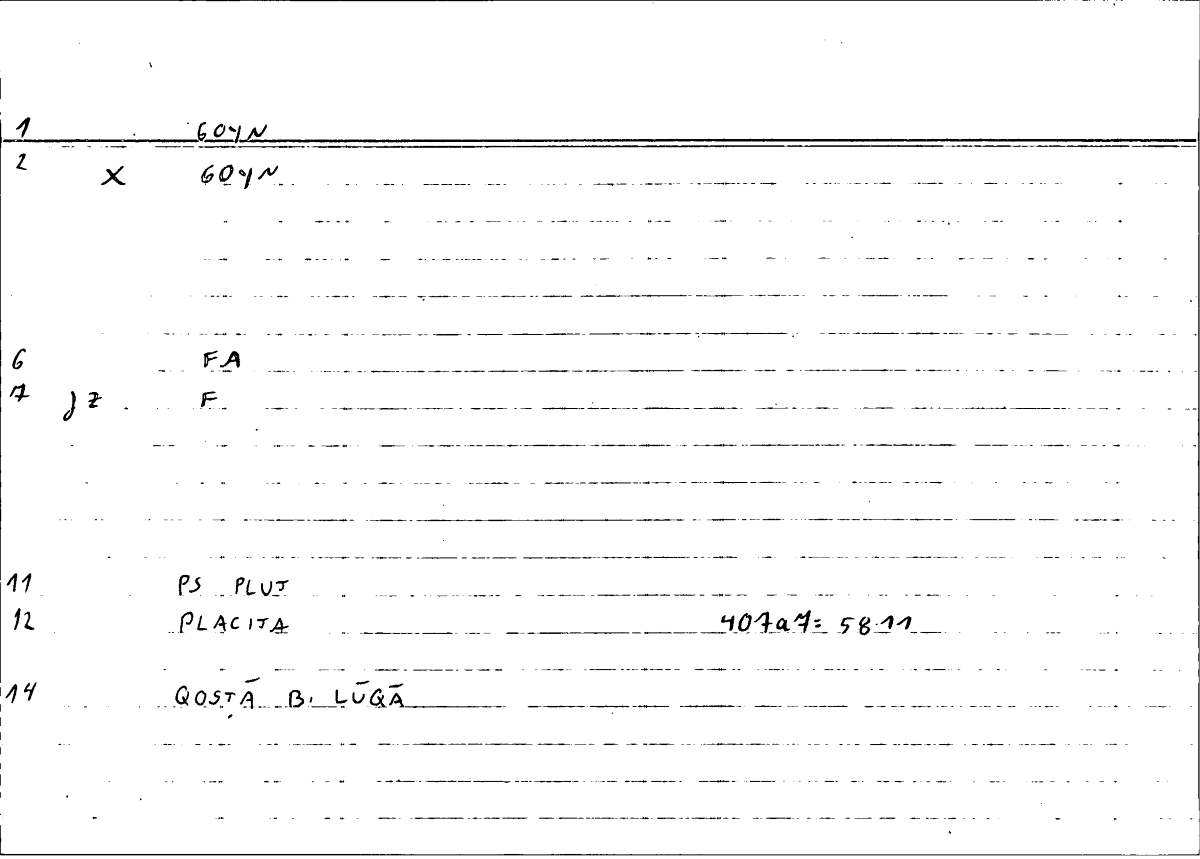 1 GOYN
2 X GOYN
6 FA
7 jz F
11 PS PLUT
12 PLACITA 407a7= 58.11
14 QOSṬĀ B. LŪQĀ